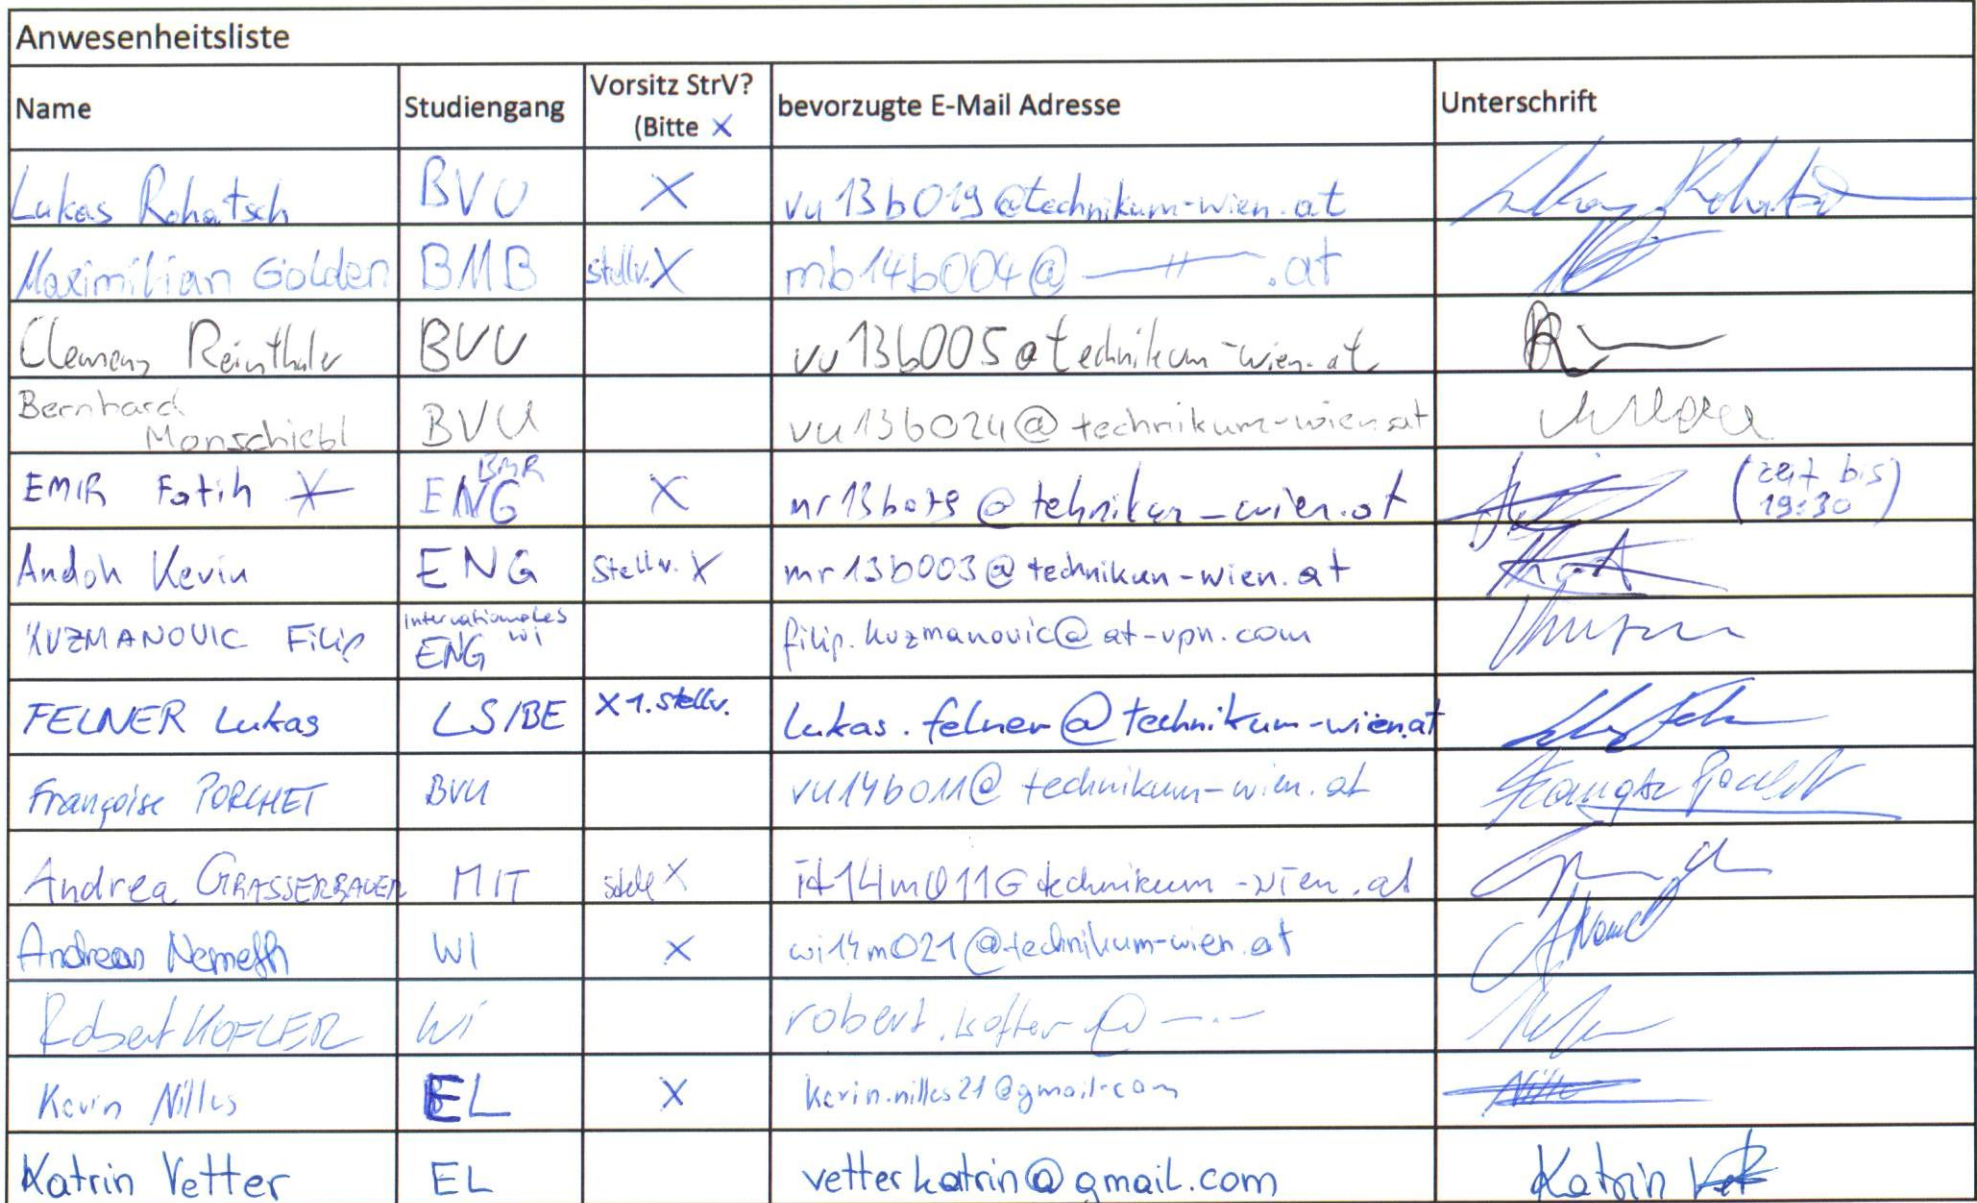 Anwesenheitsliste
Name Studiengang Vorsitz StrV? (Bitte X bevorzugte E-Mail Adresse Unterschrift
Lukas Rohatsch BVU X vu13b019@technikum-wien.at Lukas Rohatsch
Maximilian Golden BMB stellv. X mb14b004@ —〃— .at
Clemens Reinthaler BVU vu13b005@technikum-wien.at
Bernhard Monschiebl BVU vu13b024@technikum-wien.at
EMIR Fatih X ENG BMR X @tehnikun-wien.at (zeit bis 19:30)
Andoh Kevin ENG Stellv. X mr13b003@technikun-wien.at
KUZMANOVIC Filip Internationales WI ENG filip.kuzmanovic@at-vpn.com
FELNER Lukas LS/BE X 1. Stellv. lukas.felner@technikum-wien.at
Françoise PORCHET BVU vu14b011@technikum-wien.at
Andrea GRASSERBAUER MIT X it14m011@technikum-wien.at
Andreas Nemeth WI X wi14m021@technikum-wien.at
Robert KOFLER WI robert.kofler@ —.—
Kevin Nilles EL X kevin.nilles21@gmail.com
Katrin Vetter EL vetterkatrin@gmail.com Katrin